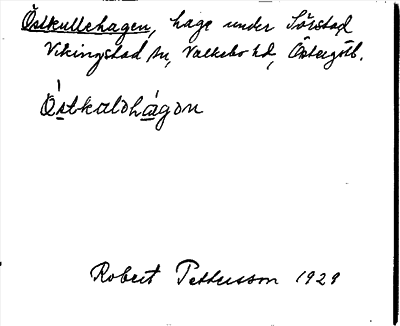 Östkullehagen, hage under Sörstad
Vikingstad sn, Valkebo hd, Östergötl.
Östkulohagon
Robert Pettersson 1929